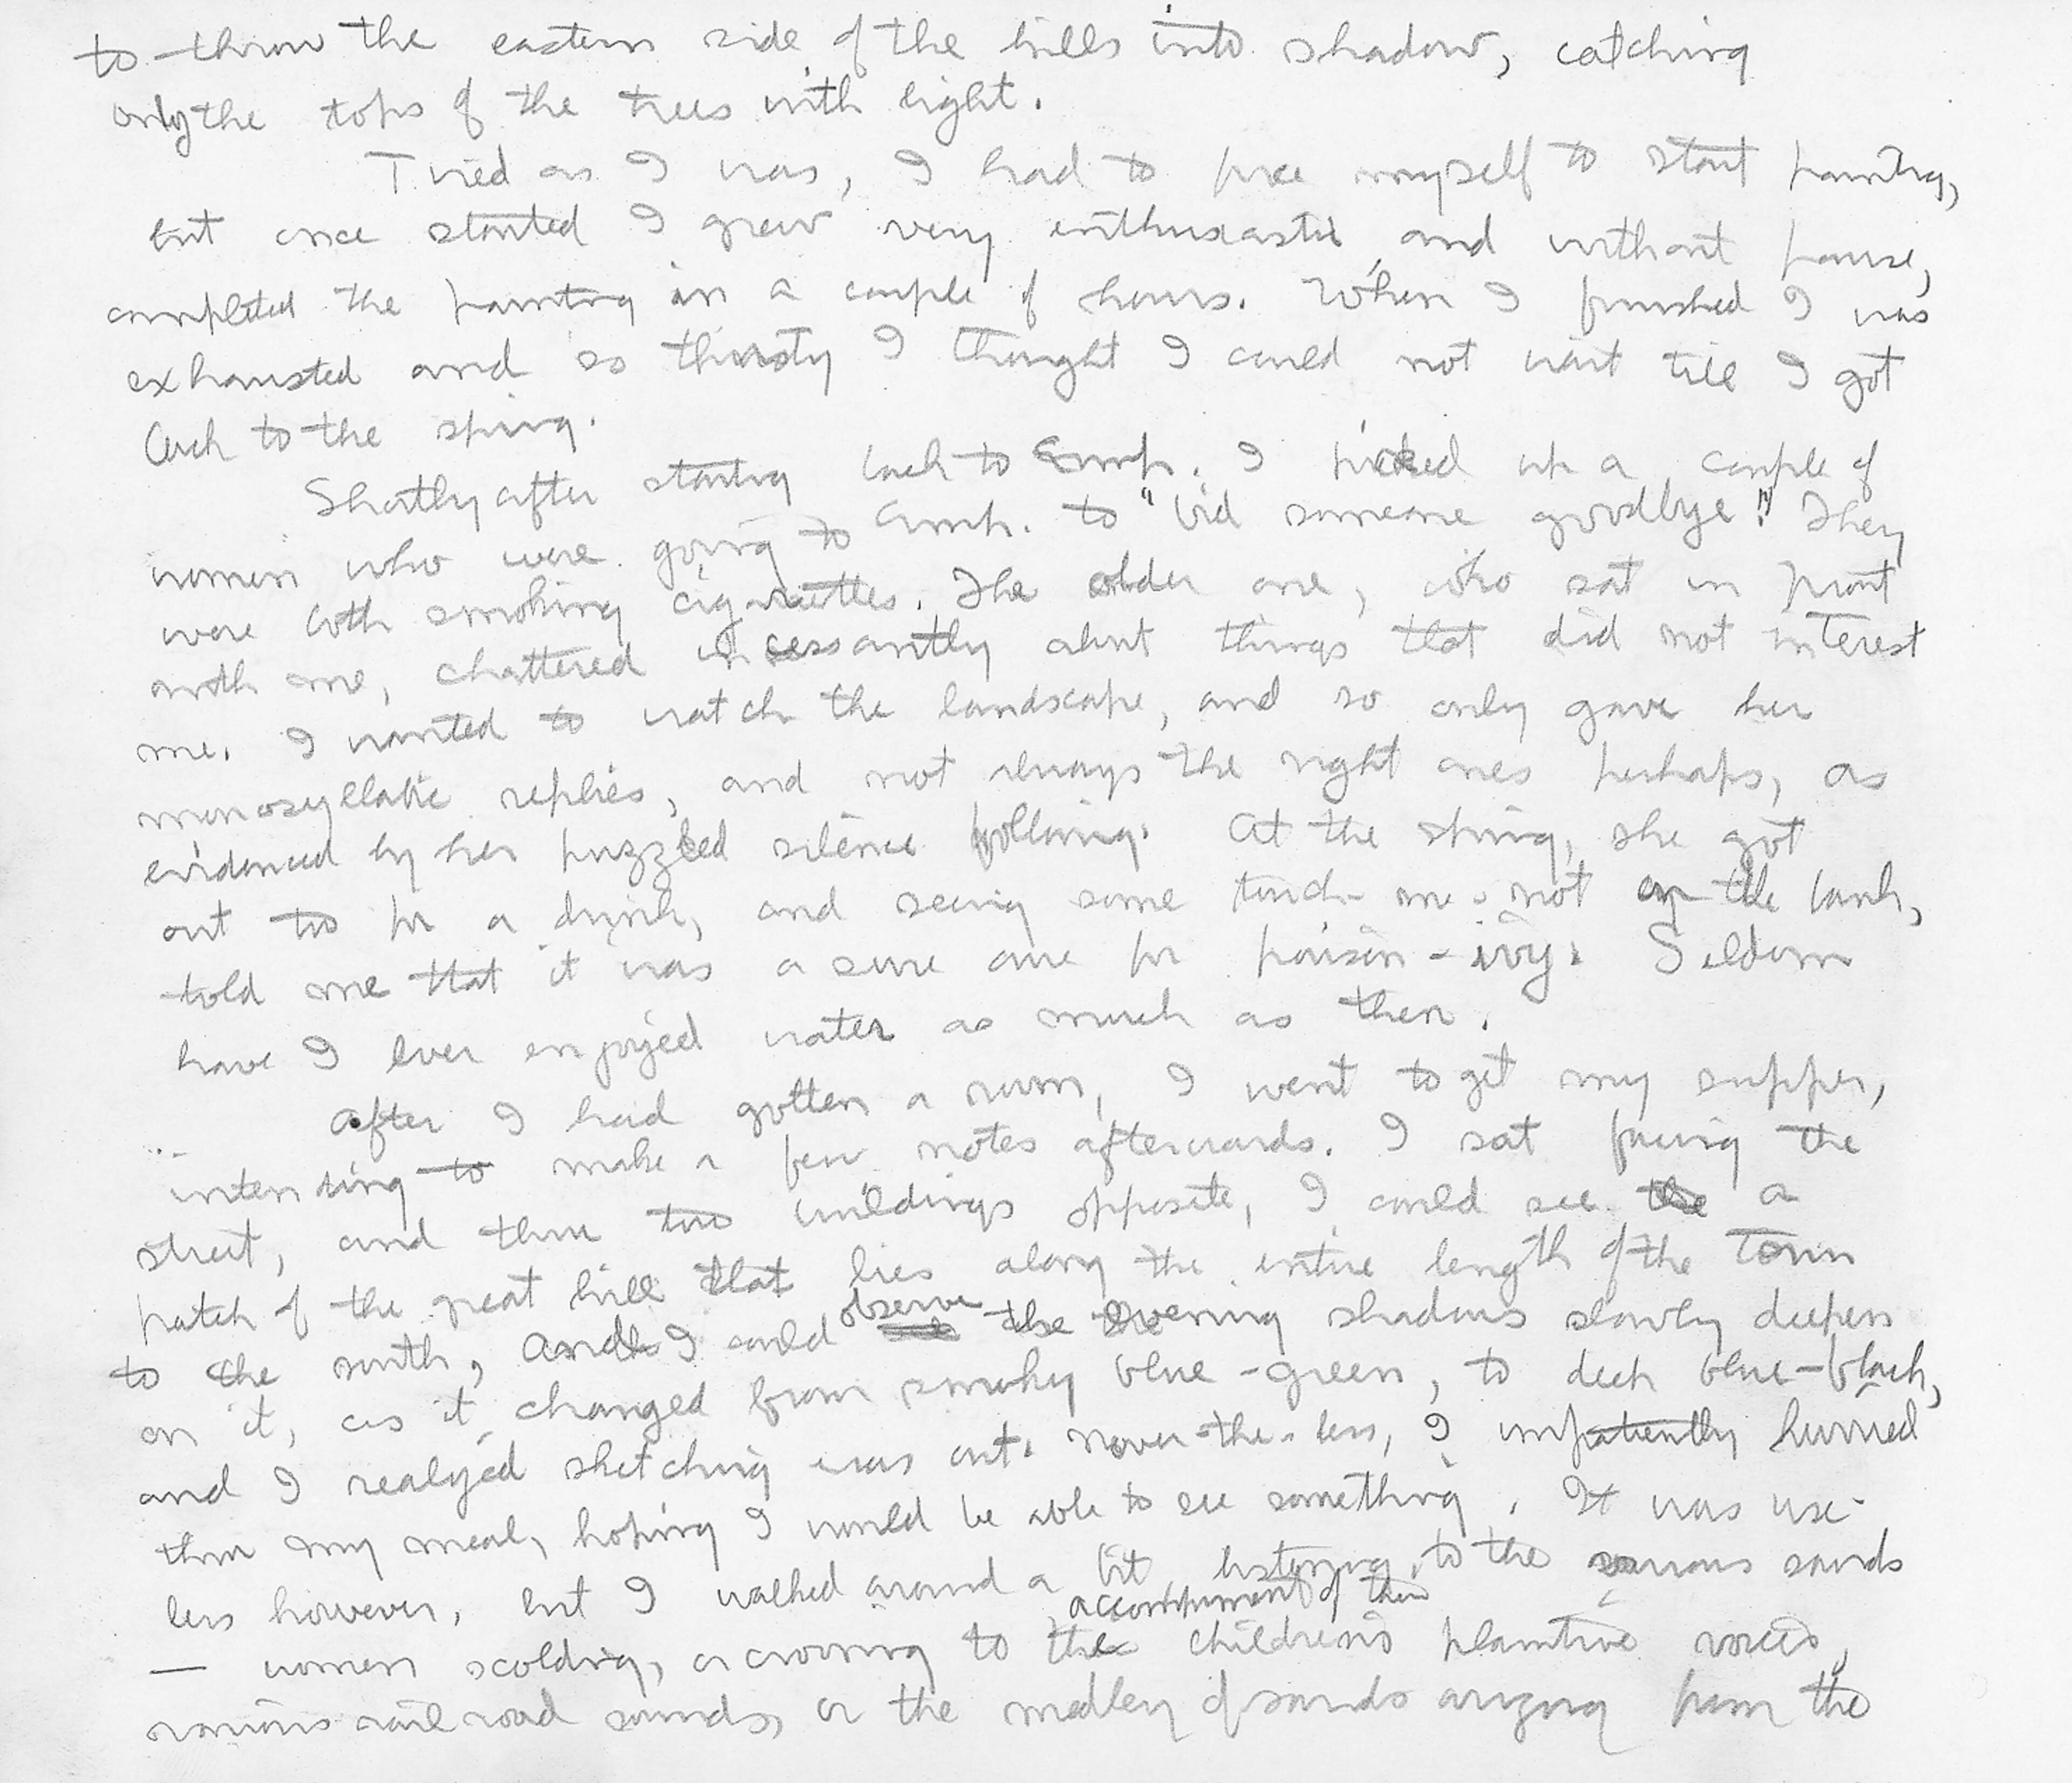 to throw the eastern side of the hills into shadow, catching
only the tops of the trees with light.
Tired as I was, I had to force myself to start painting,
but once started I grew very enthusiastic and without pause,
completed the painting in a couple of hours. When I finished I was
exhausted and so thirsty I thought I could not wait till I got
back to the spring.
Shortly after starting back to Emp. I picked up a couple of
women who were going to Emp. to "bid someone goodbye". They
were both smoking cigarettes. The older one, who sat in front
with me, chattered incessantly about things that did not interest
me. I wanted to watch the landscape, and so only gave her
monosyllabic replies, and not always the right ones perhaps, as
evidenced by her puzzled silence following. At the spring, she got
out too for a drink, and seeing some touch-me-not on the bank,
told me that it was a sure cure for poison-ivy. Seldom
have I ever enjoyed water as much as then.
After I had gotten a room, I went to get my supper,
intending to make a few notes afterwards. I sat facing the
street, and thru two buildings opposite, I could see the a
patch of the great hill that lies along the entire length of the town
to the south, and I could observe the evening shadows slowly deepen
on it, as it changed from smoky blue-green, to deep blue-black,
and I realized sketching was out. Never-the-less, I impatiently hurried
thru my meal, hoping I would be able to see something. It was use-
less however, but I walked around a bit listening to the various sounds
— women scolding, or crooning to the accompaniment of their children's plaintive voices,
various railroad sounds, or the medley of sounds arizing from the